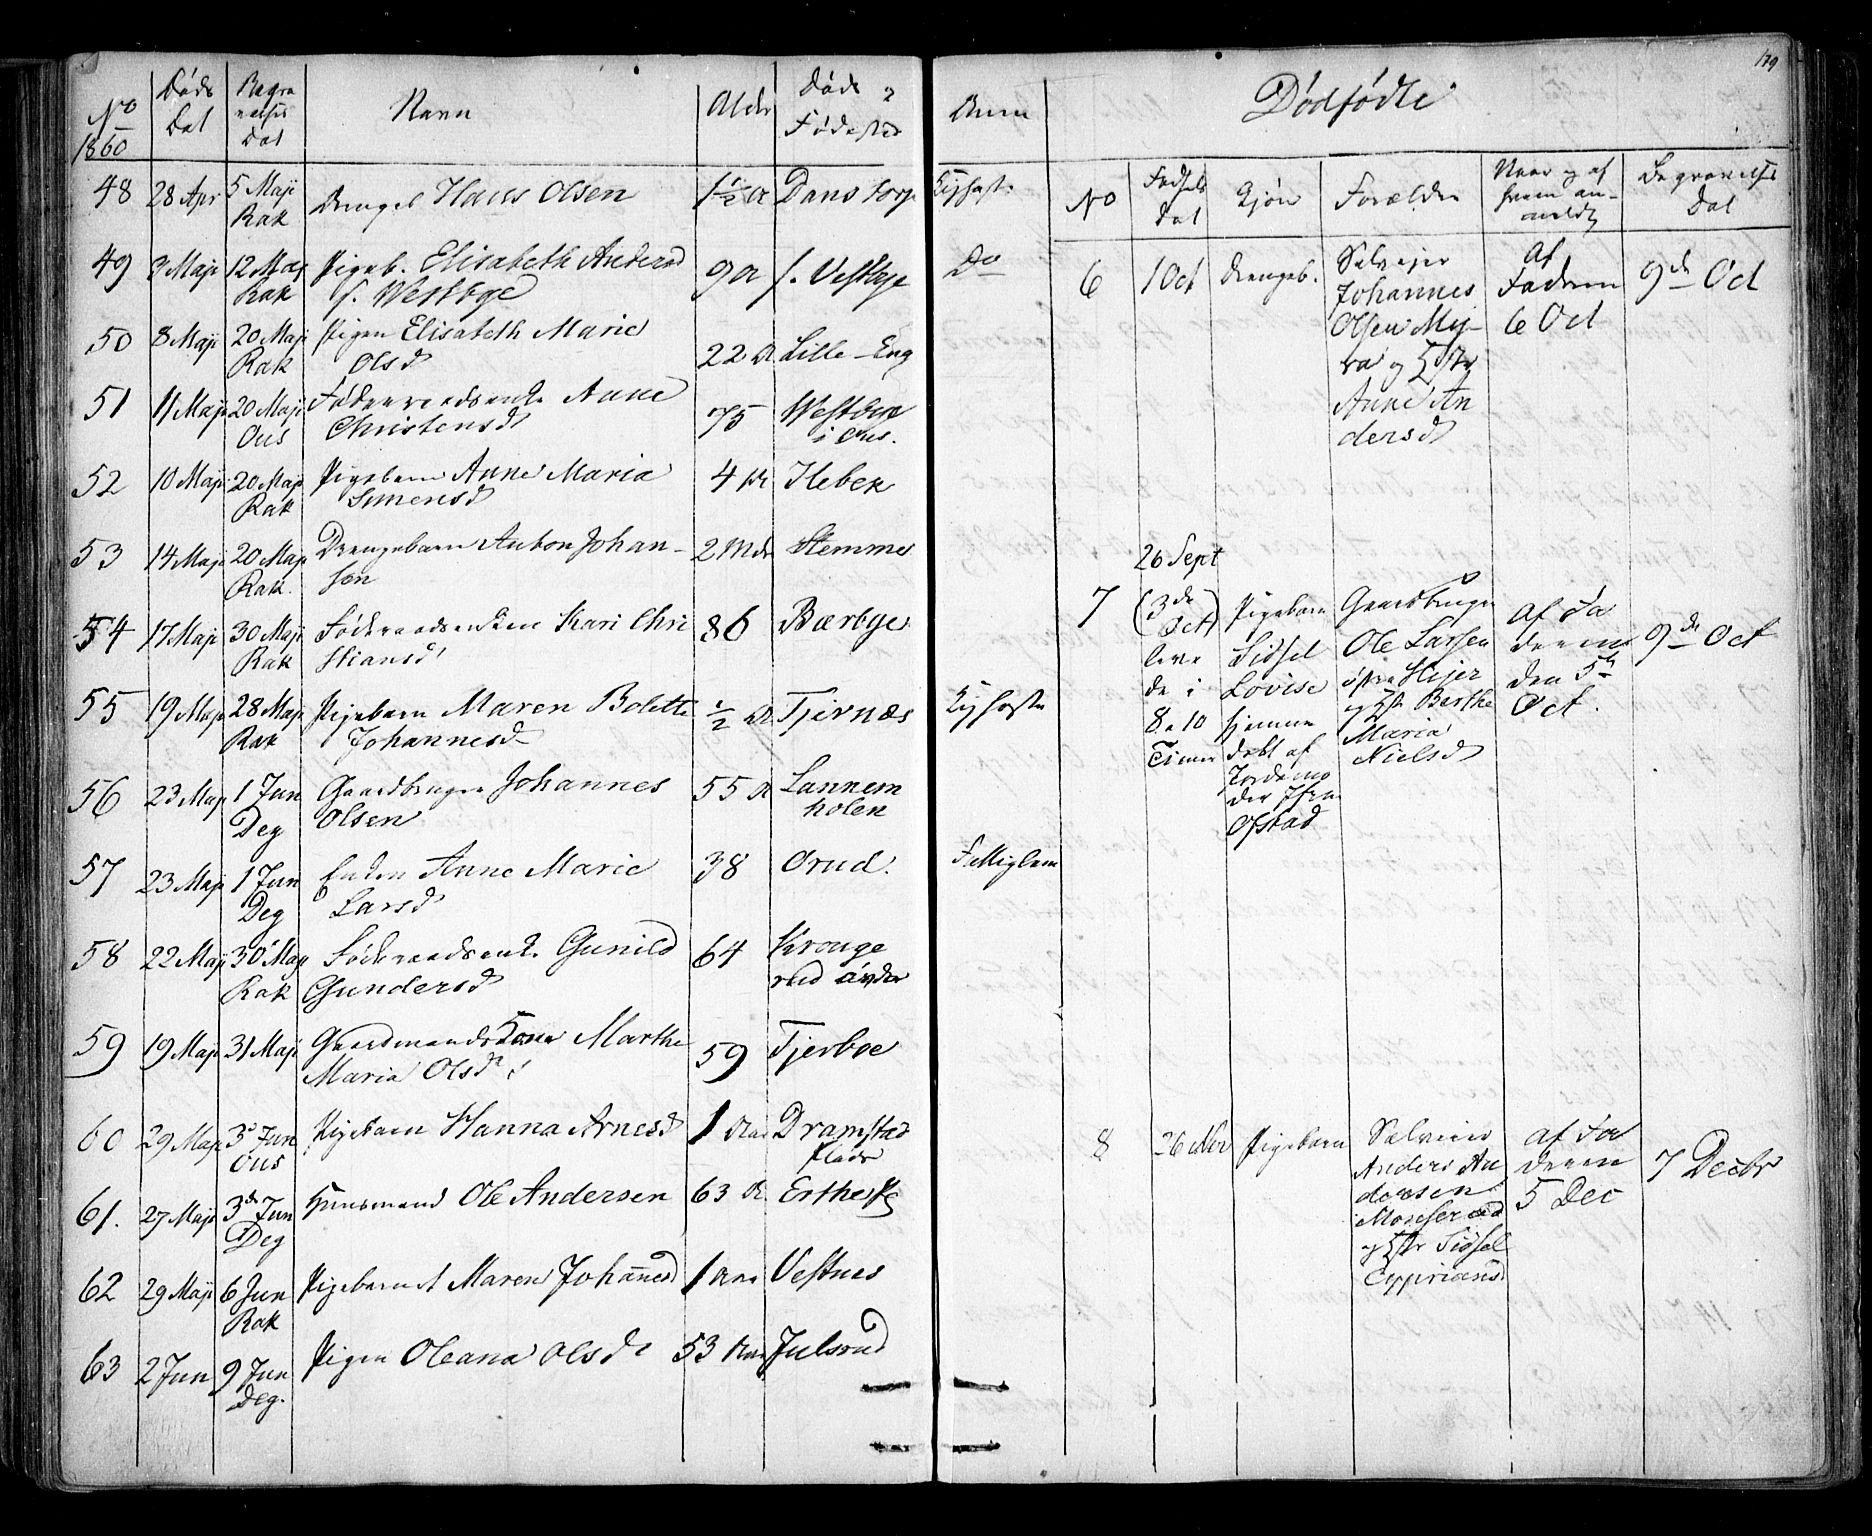 179
No
1860
Døds
Dat
Begra
velses
Dat
Navn
Alder
Døds
Fødested
Anm
48 28 Apr 5 Maji Rak Drengeb Hans Olsen 1½ A Dans torp Kighoste
49 3 Maji 12 Maj Rak Pigeb. Elisabeth Andersd f. Westbye 9 A f. Vestbye Do
50 8 Maji 20 Maji Rak Pigen Elisabeth Marie Olsd 22 A Lille-Eng
51 11 Maji 20 Maji Ous Føderaadsenke Anne Christensd 75 Westbye i Ous.
52 10 Maji 20 Maji Rak Pigebarn Anne Maria Simensd 4 Ilebek
53 14 Maji 20 Maji Rak. Drengebarn Anton Johan- sen 2 Mdr Stemme
54 17 Maji 30 Maji Rak Føderaadsenken Kari Chri stiansd 86 Bærbye
55 19 Maji 28 Maji Rak Pigebarn Maren Bolette Johannesd ½ A Tjernæs Kighoste
56 23 Maji 1 Jun Deg Gaardbruger Johannes Olsen 55 A Lannem holen
57 23 Maji 1 Jun Deg Enken Anne Marie Larsd 38 Orud.
58 22 Maji 30 Maji Rak Føderaadsenke Gunild Gundersd 64 Krouge rud øvder
59 19 Maji 31 Maji Gaardmandskone Marthe Maria Olsd 59 Tjerboe
60 29 Maji 3 Jun Ous Pigebarn Hanna Arnesd 1 Aar Dramstad plads
61. 27 Maji 3d Jun Deg Huusmand Ole Andersen 63 A
62 29 Maji 6 Jun Rak Pigebarnet Maren Johannesd 1 Aar Vestnes
63 2 Jun 9 Jun Deg. Pigen Oleana Olsd 53 Aar Julsrud
Dødfødte
No
Fødsels
Dat
Kjøn
Forældre
Naar og af
hvem an-
meldt
Begravelses
Dat
6 1 Oct Drengeb.
Selvejer
Johannes
Olsen My-
ra og Hstr
Anne An
dersd
Af
Faderen
6 Oct
9de Oct
7
26 Sept
(3de
Oct)
leve
de i
8 a 10
Timer
Pigebarn
Sidsel
Lovise
hjemme
døbt af
Jordemo
der
Ofstad
Gaardbruger
Ole Larsen
østre Hejer
og Hstr Berthe
Maria
Nielsd
af Fa
deren
den 5te
Oct.
9de Oct
8 26 Nov Pigebarn
Selveier
Anders An
dersen
og Hstr Sidsel
Cypriansd
af Fa
deren
5 Dec
7 Decbr